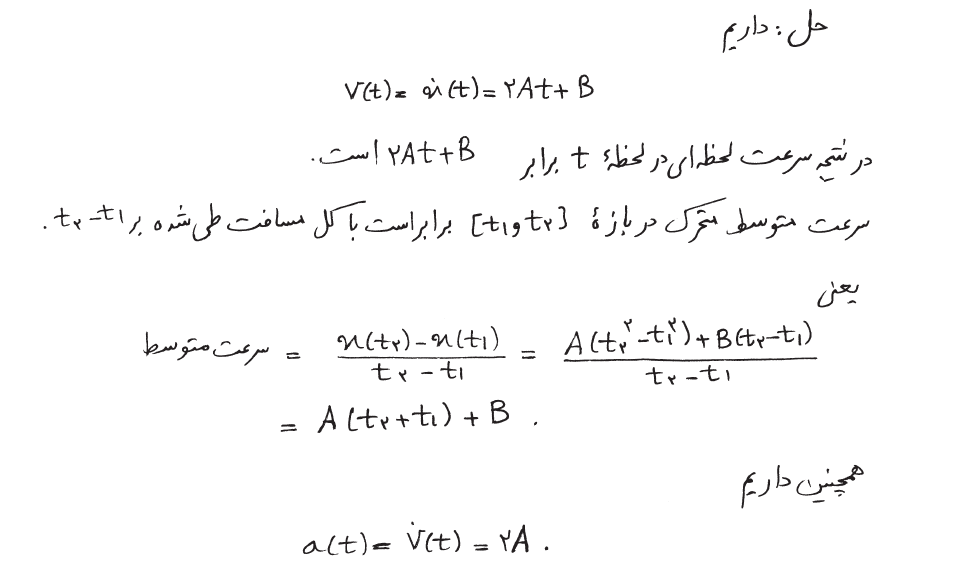 حل: داریم
V(t) = ẋ(t) = ۲At + B
در نتیجه سرعت لحظه‌ای در لحظهٔ t برابر ۲At + B است.
سرعت متوسط متحرک در بازهٔ [t۱ و t۲] برابر است با کل مسافت طی شده بر t۲ - t۱.
یعنی
سرعت متوسط = (x(t۲) - x(t۱)) / (t۲ - t۱) = (A(t۲^۲ - t۱^۲) + B(t۲ - t۱)) / (t۲ - t۱)
= A(t۲ + t۱) + B .
همچنین داریم
a(t) = V̇(t) = ۲A .